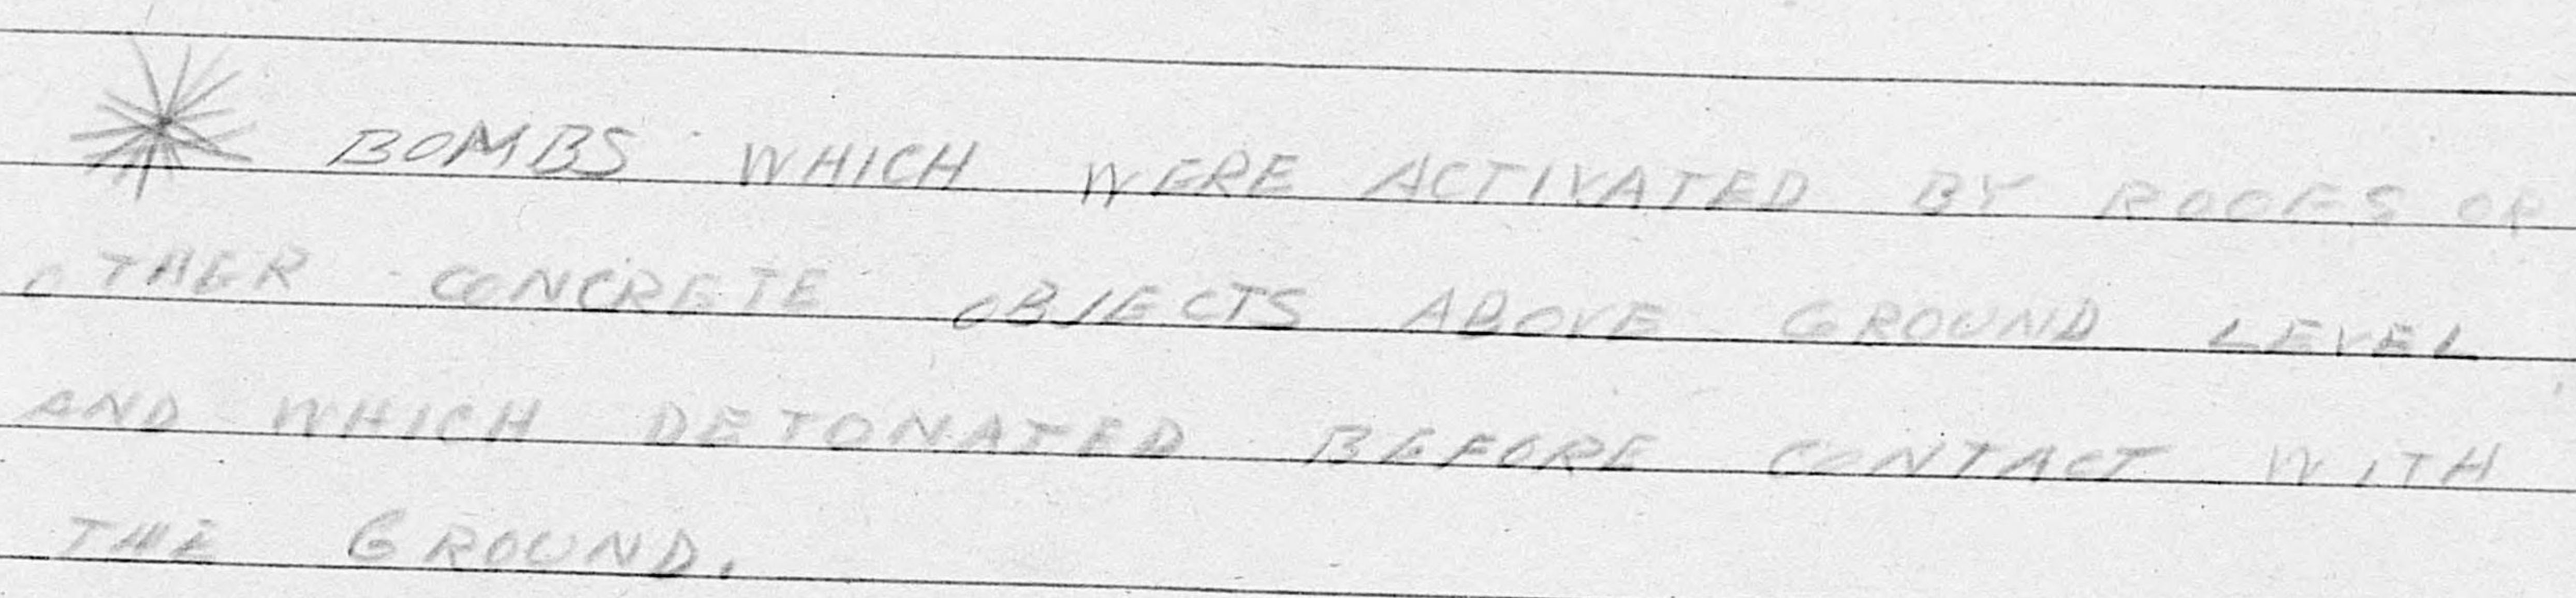 * BOMBS WHICH WERE ACTIVATED BY ROOFS OR
OTHER CONCRETE OBJECTS ABOVE GROUND LEVEL
AND WHICH DETONATED BEFORE CONTACT WITH
THE GROUND.